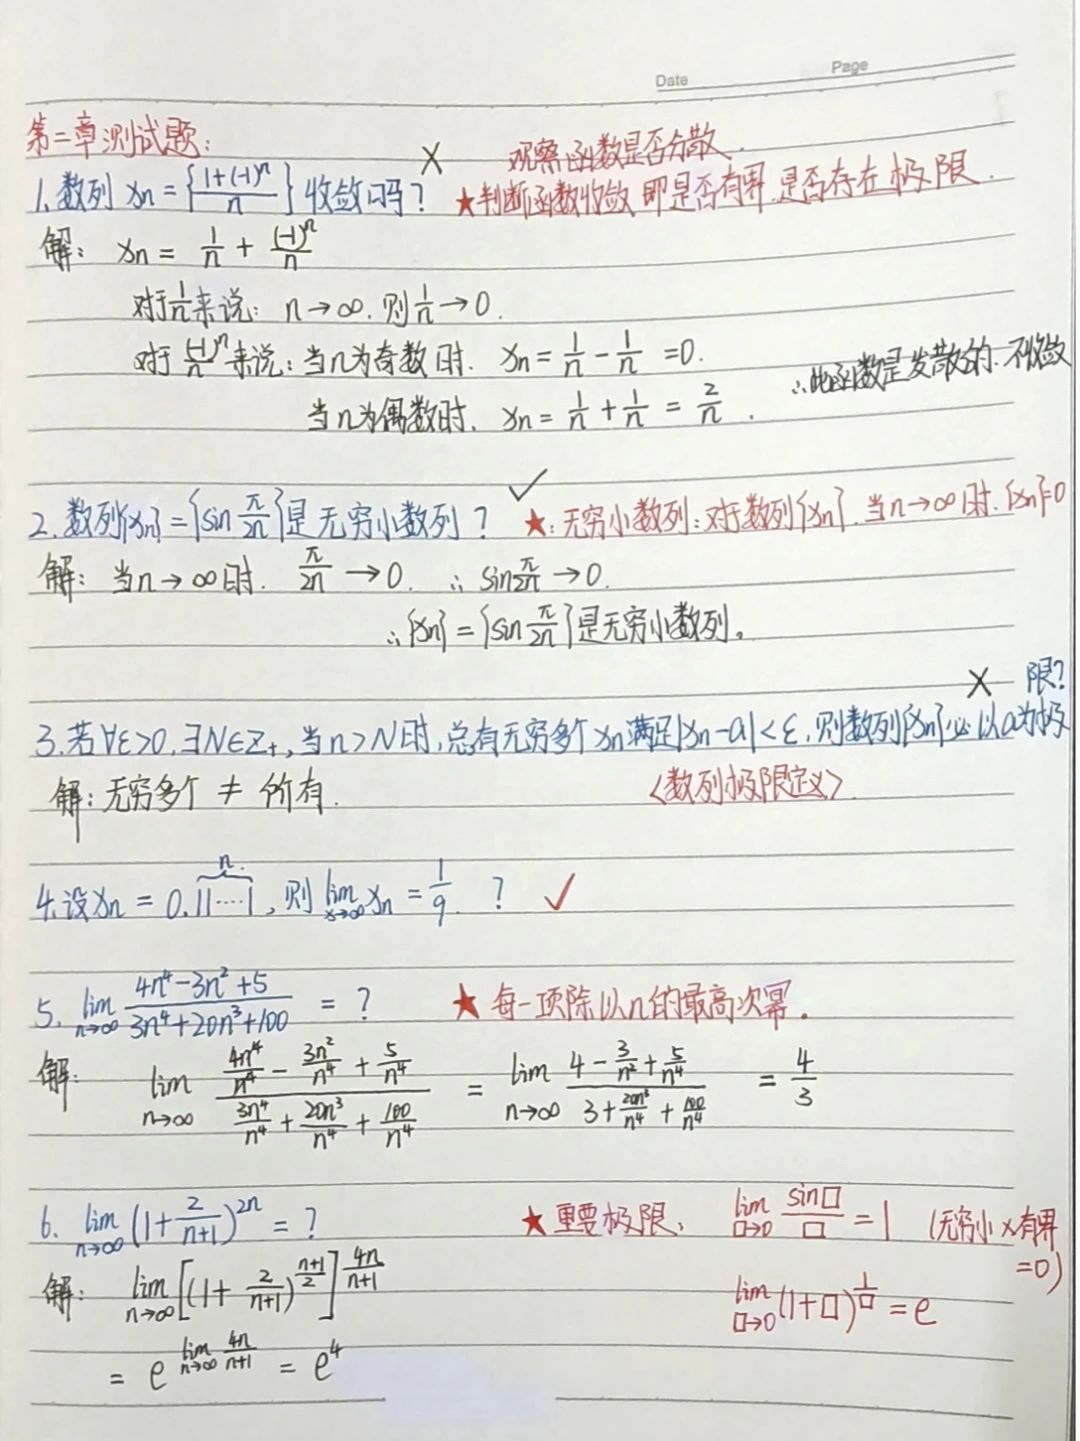 Date Page
第二章测试题:
× 观察函数是否分散.
1.数列 xn = {\frac{1+(-1)^n}{n}} 收敛吗? ★判断函数收敛 即是否有界.是否存在极限.
解: xn = \frac{1}{n} + \frac{(-1)^n}{n}
对于\frac{1}{n}来说: n→∞. 则\frac{1}{n}→0.
对于\frac{(-1)^n}{n}来说:当n为奇数时. xn = \frac{1}{n} - \frac{1}{n} = 0. ∴此函数是发散的.不收敛
当n为偶数时. xn = \frac{1}{n} + \frac{1}{n} = \frac{2}{n}.
✓
2.数列{xn} = {sin \frac{π}{2n}}是无穷小数列? ★:无穷小数列:对于数列{xn}.当n→∞时.{xn}=0
解:当n→∞时. \frac{π}{2n}→0. ∴ sin\frac{π}{2n}→0.
∴{xn} = {sin \frac{π}{2n}}是无穷小数列。
× 限?
3.若∀ε>0,∃N∈Z₊,当n>N时,总有无穷多个xn满足|xn-a|<ε,则数列{xn}必以a为极
解:无穷多个 ≠ 所有. <数列极限定义>
n.
4.设xn = 0.11····1,则 lim_{x→∞} xn = \frac{1}{9}. ? ✓
5. lim_{n→∞} \frac{4n^4-3n^2+5}{3n^4+20n^3+100} = ? ★每一项除以n的最高次幂.
解: lim_{n→∞} \frac{\frac{4n^4}{n^4} - \frac{3n^2}{n^4} + \frac{5}{n^4}}{\frac{3n^4}{n^4} + \frac{20n^3}{n^4} + \frac{100}{n^4}} = lim_{n→∞} \frac{4 - \frac{3}{n^2} + \frac{5}{n^4}}{3 + \frac{20n^3}{n^4} + \frac{100}{n^4}} = \frac{4}{3}
6. lim_{n→∞} (1+\frac{2}{n+1})^{2n} = ? ★重要极限、 lim_{□→0} \frac{sin□}{□} = 1 (无穷小×有界=0)
解: lim_{n→∞} [(1+\frac{2}{n+1})^{\frac{n+1}{2}}]^{\frac{4n}{n+1}} lim_{□→0} (1+□)^{\frac{1}{□}} = e
= e^{lim_{n→∞} \frac{4n}{n+1}} = e^4